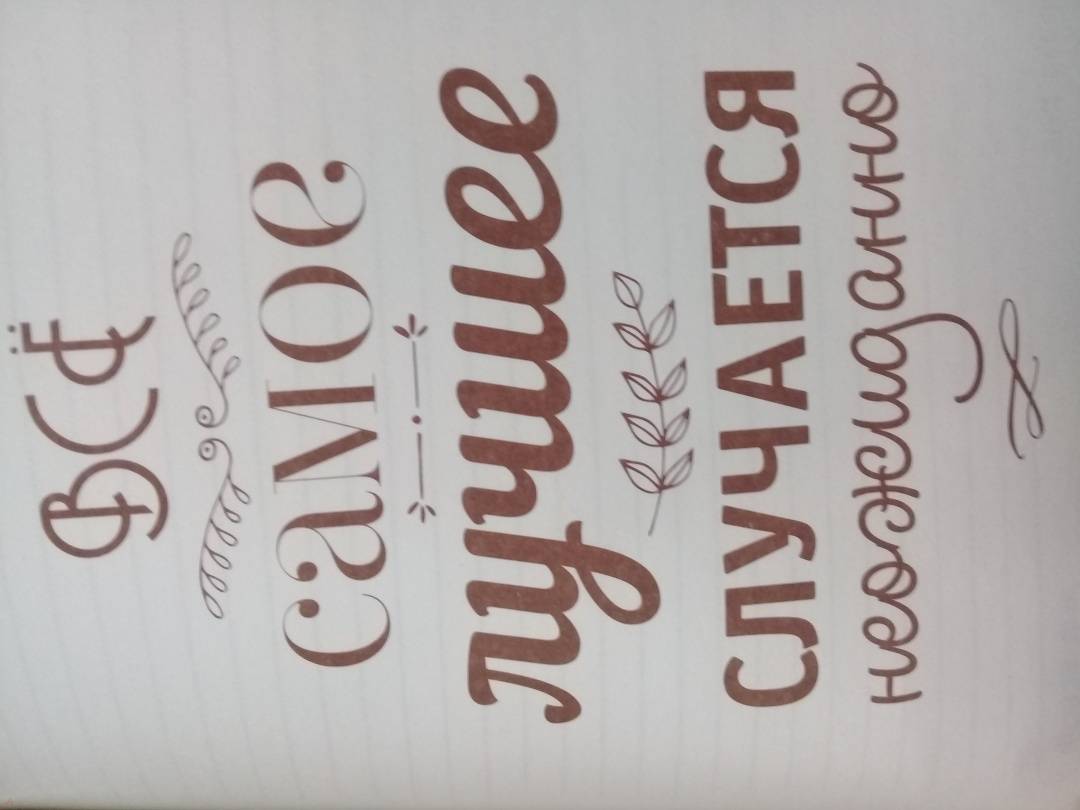 ВСЁ
самое
лучшее
СЛУЧАЕТСЯ
неожиданно